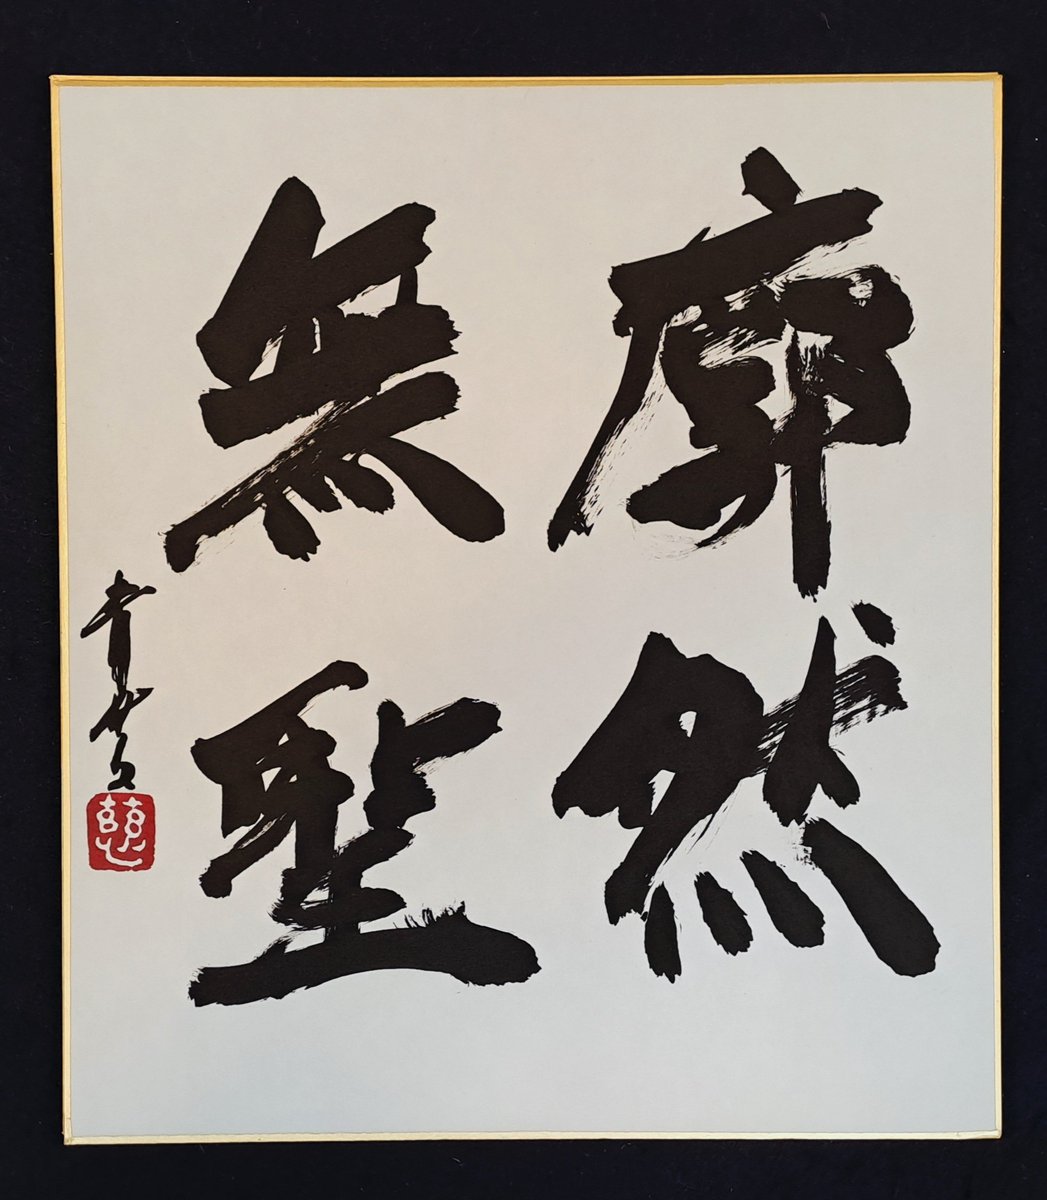 廓然
無聖